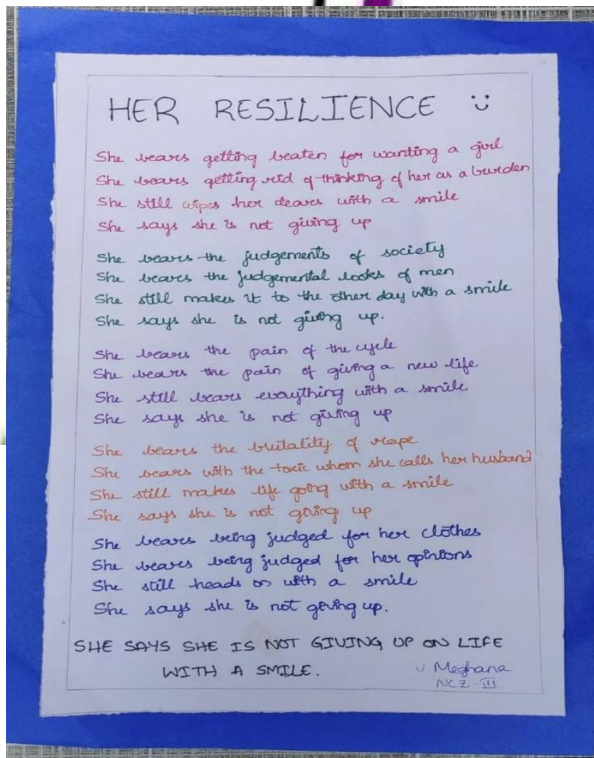 HER RESILIENCE
She bears getting beaten for wanting a girl
She bears getting rid of thinking of her as a burden
She still wipes her deares with a smile
She says she is not giving up
She bears the judgements of society
She bears the judgemental looks of men
She still makes it to the other day with a smile
She says she is not giving up.
She bears the pain of the cycle
She bears the pain of giving a new life
She still bears everything with a smile
She says she is not giving up
She bears the brutality of rape
She bears with the toxic whom she calls her husband
She still makes life going with a smile
She says she is not giving up
She bears being judged for her clothes
She bears being judged for her opinions
She still heads on with a smile
She says she is not giving up.
SHE SAYS SHE IS NOT GIVING UP ON LIFE
WITH A SMILE.
Meghana
NCZ-III